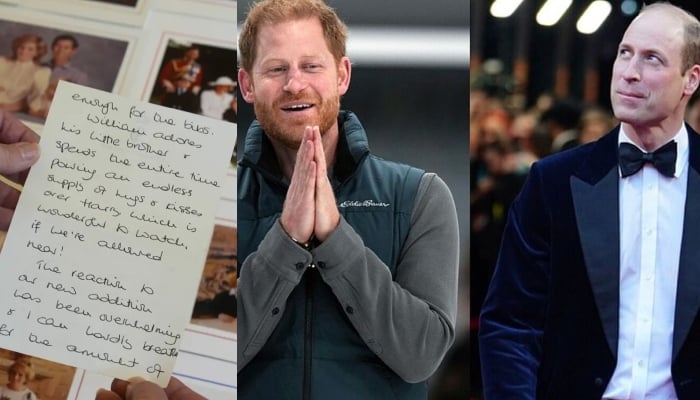 enough for the bids.
William adores
his little brother &
spends the entire time
pouring an endless
supply of hugs & kisses
over Harry which is
wonderful to watch
if we're allowed
near!
The reaction to
our new addition
has been overwhelming
& I can hardly breathe
for the amount of
Eddie Bauer